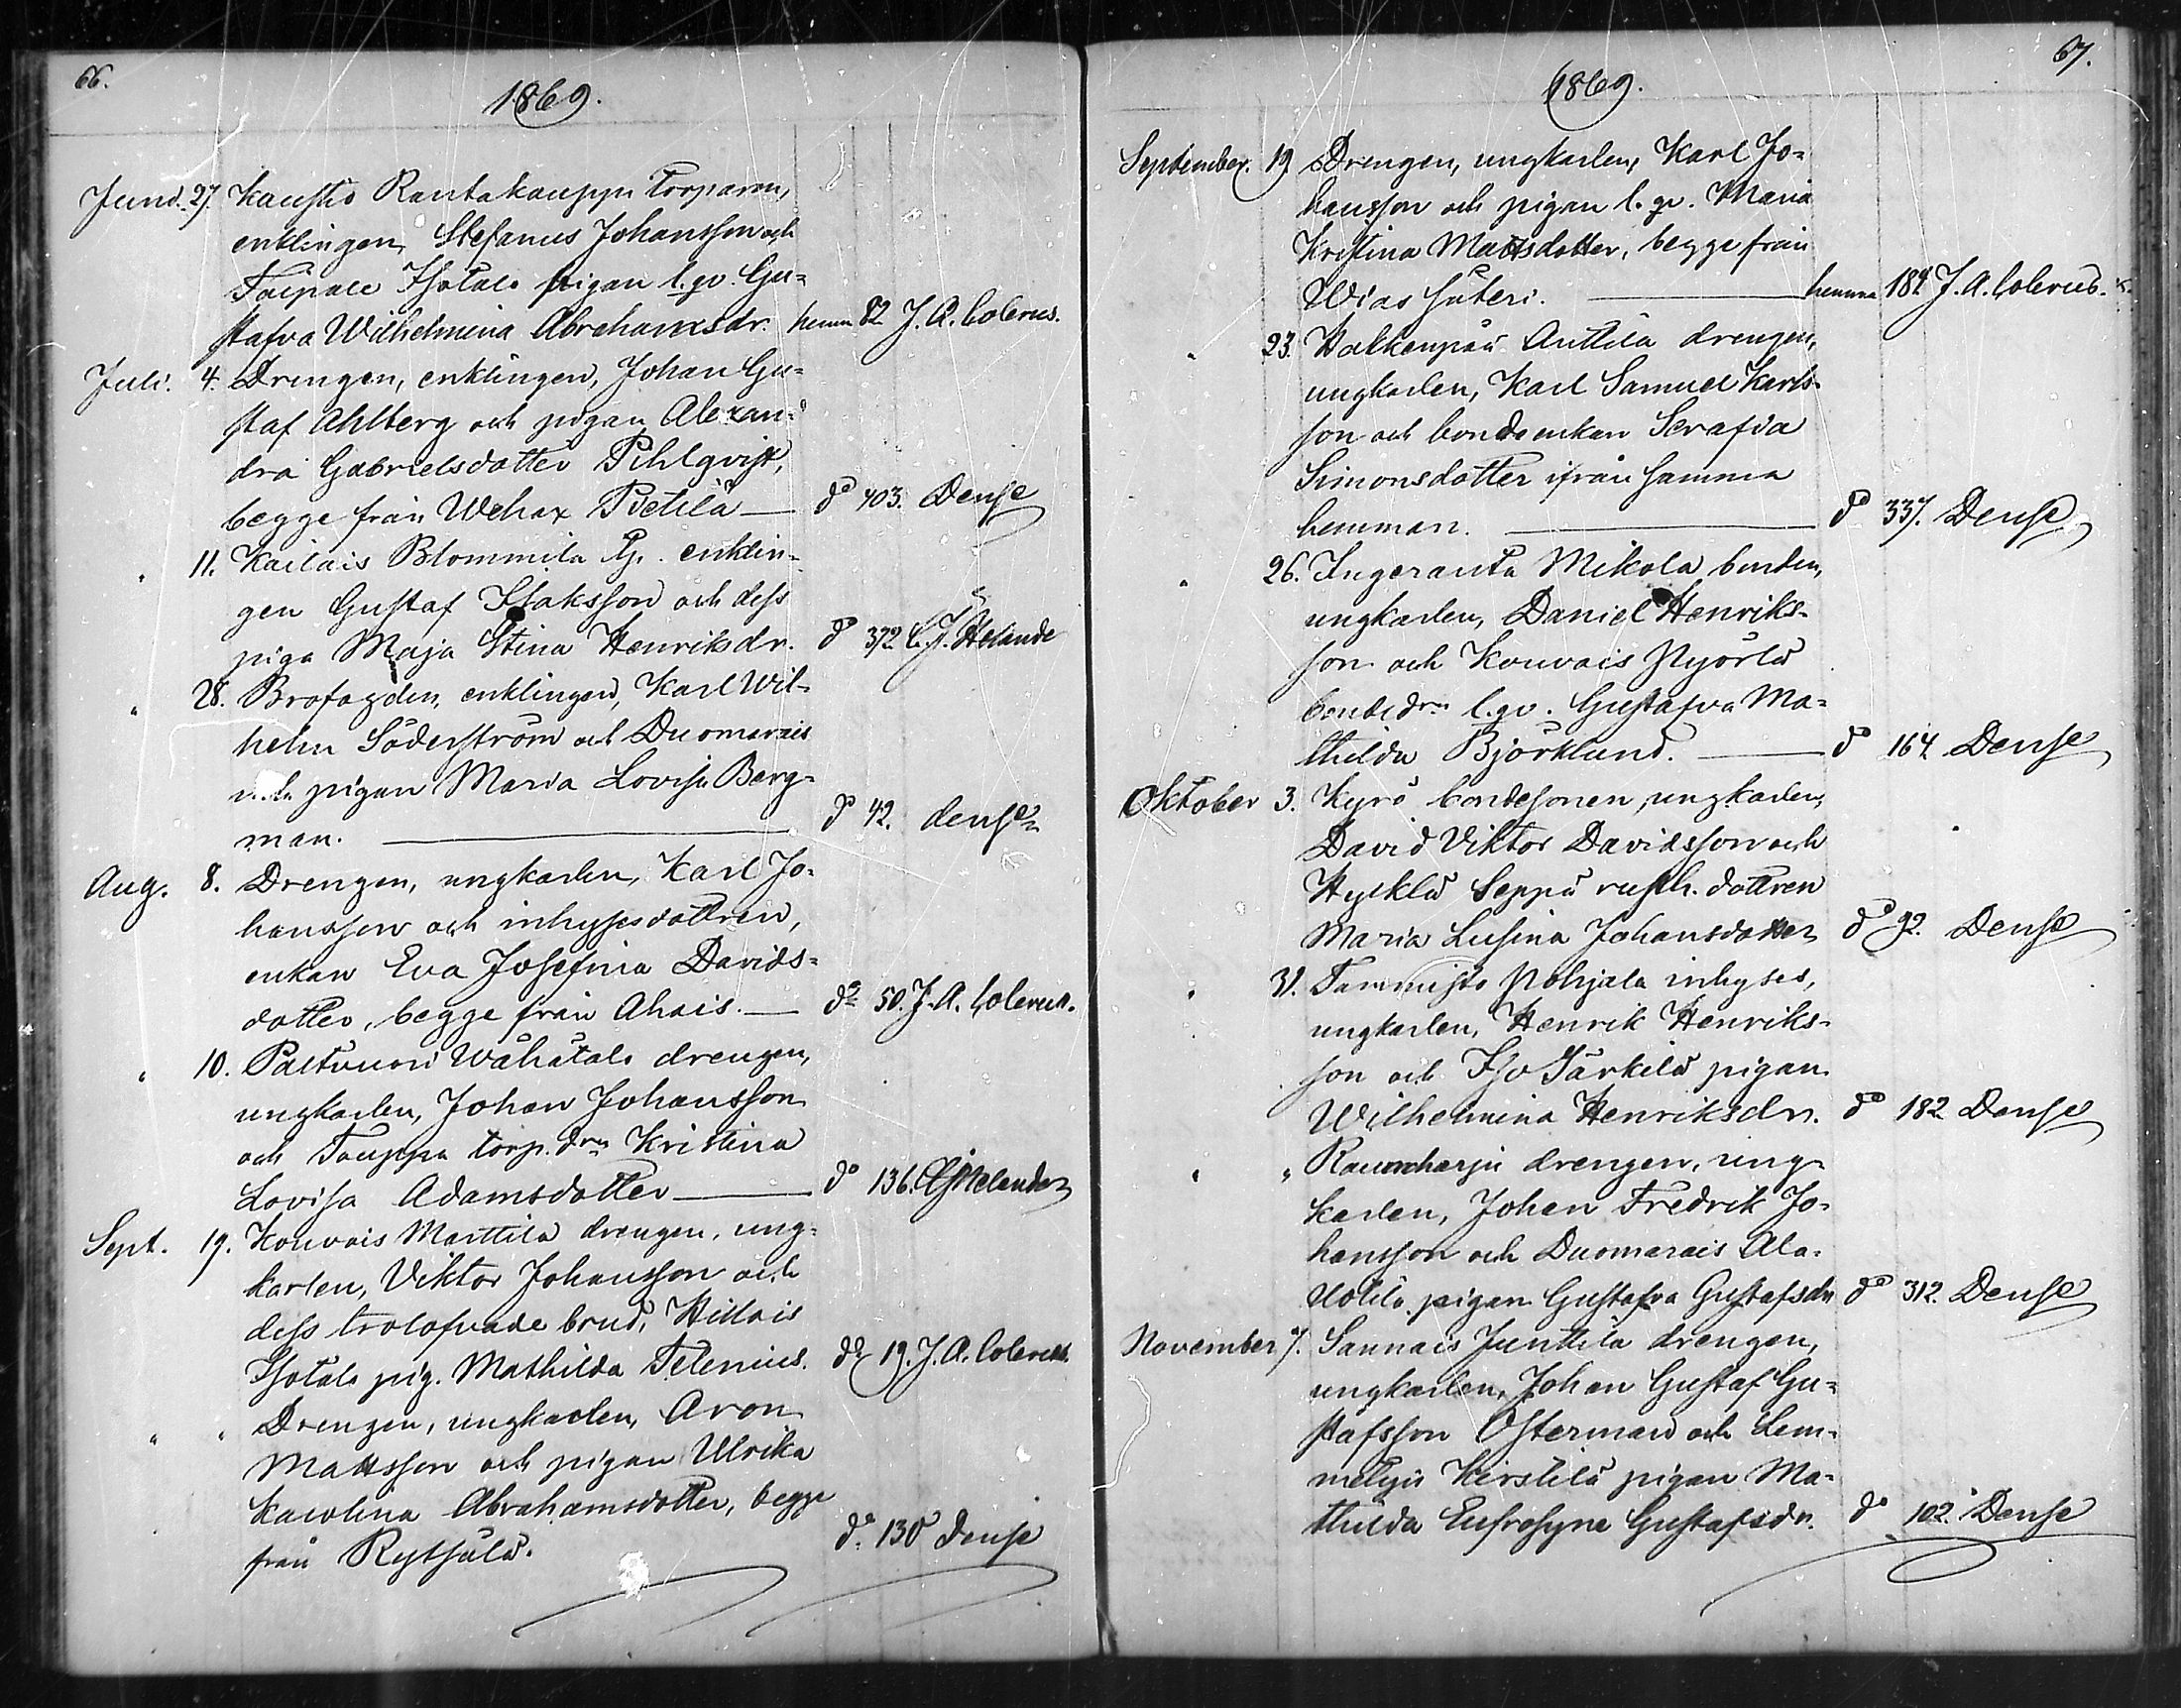 66.
1869.
Juni. 27. Kausto Rantakauppi torparen,
enklingen, Stefanus Johansson och
Taipale Isotalo pigan l. qv. Gu-
stafva Wilhelmina Abrahamsdr. hemm 82 J. A. Colerus.
Juli. 4. Drengen, enklingen, Johan Gu-
staf Ahlberg och pigan Alexan-
dra Gabrielsdotter Pihlqvist,
begge från Wehax Pietilä — do 403. Dense
" 11. Kailais Blommila enklin-
gen Gustaf Isaksson och dess
piga Maja Stina Henriksdr. do 372
" 28. Brofogden, enklingen, Karl Wil-
helm Söderström och Duomarais
pigan Maria Lovisa Berg-
man. — do 42. dense
Aug. 8. Drengen, ungkarlen, Karl Jo-
hansson och inhysesdottren,
enkan Eva Josefina Davids-
dotter, begge från Ahais. — do 50. J. A. Colerus.
" 10. Paltvuori Wähätalo drengen,
ungkarlen, Johan Johansson
och torp. drn Kristina
Lovisa Adamsdotter — do 136.
Sept. 19. Kouvais Marttila drengen, ung-
karlen, Viktor Johansson och
dess trolofvade brud, Hillais
Isotalo pig. Mathilda Telenius. do 19. J. A. Colerus.
" " Drengen, ungkarlen, Aron
Mattsson och pigan Ulrika
Karolina Abrahamsdotter, begge
från Rytsälä. do 130 Dense
67.
1869.
September. 19. Drengen, ungkarlen, Karl Jo-
hansson och pigan l. qv. Maria
Kristina Mattsdotter, begge från
Wias säteri. — hemma 182 J. A. Colerus.
" 23. Halkenpää Anttila drengen,
ungkarlen, Karl Samuel Karls-
son och bondeenkan Serafia
Simonsdotter ifrån samma
hemman. — do 337. Dense
" 26. Ingeranta Mikola bonden,
ungkarlen, Daniel Henriks-
son och Kouvais Pyörlä
bondedrn l. qv. Gustafva Ma-
thilda Björklund. — do 164 Dense
Oktober 3. Kyrö bondesonen, ungkarlen,
David Viktor Davidsson och
Seppä rusth. dottren
Maria Lusina Johansdotter do 92. Dense
" 31. Tammisto Pohjala inhyses,
ungkarlen, Henrik Henriks-
son och Iso Särkilä pigan
Wilhelmina Henriksdr. do 182 Dense
" " drengen, ung-
karlen, Johan Fredrik Jo-
hansson och Duomarais Ala-
Uotila pigan Gustafva Gustafsdr do 312. Dense
November 7. Sannais Junttila drengen,
ungkarlen, Johan Gustaf Gu-
stafsson Österman och Lem-
metyis Kirstilä pigan Ma-
thilda Eufrosyne Gustafsdr. do 102. Dense